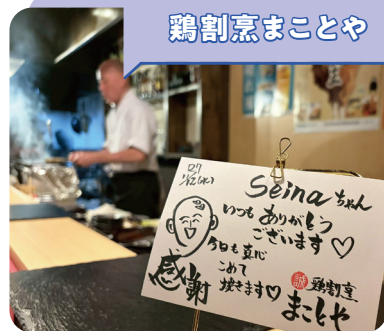 鶏割烹まことや
Seinaちゃん
いつもありがとう
ございます♡
今日も真心
こめて
焼きます♡
感謝
誠
鶏割烹
まことや